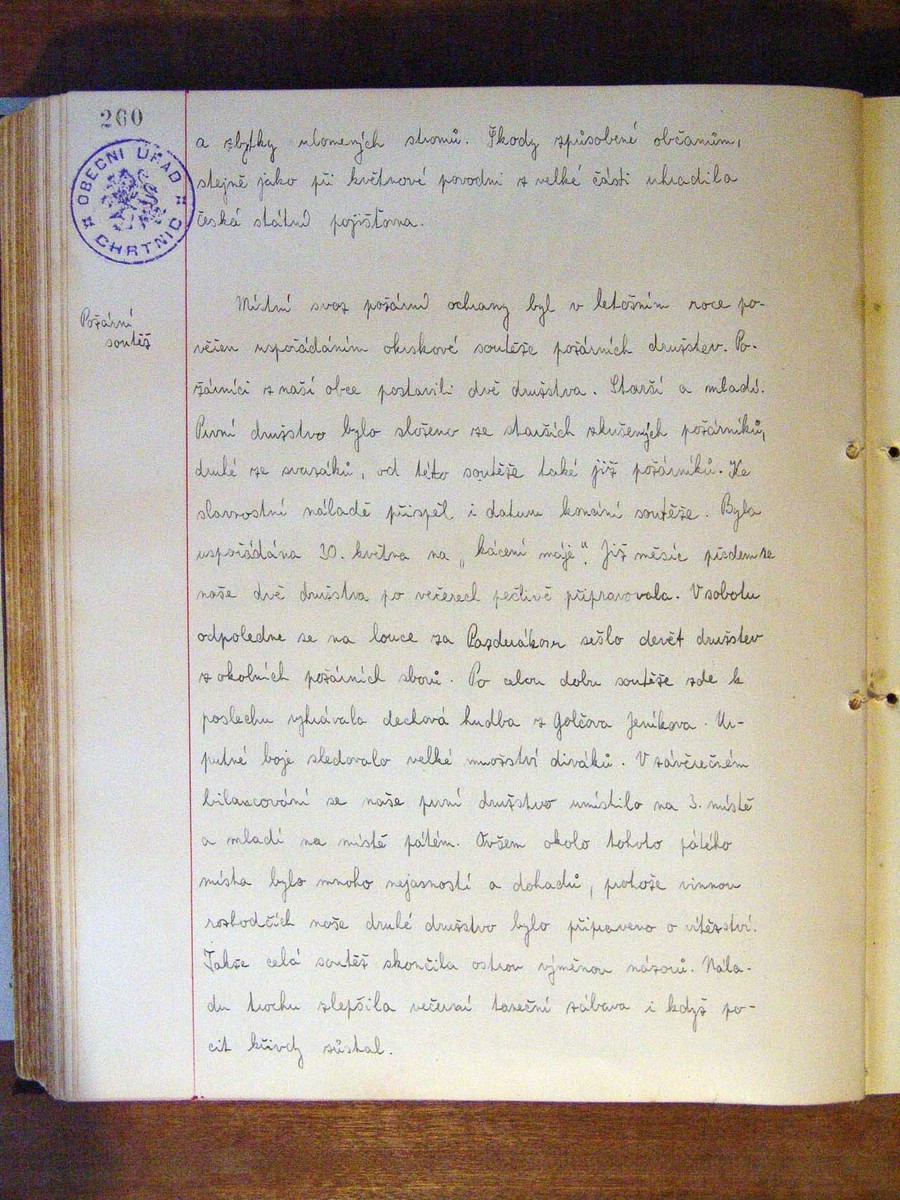 260
OBECNÍ ÚŘAD
CHRTNÍČ
a zbytky ulomených stromů. Škody způsobené občanům,
stejně jako při květnové povodni z velké části uhradila
česká státní pojišťovna.
Požární
soutěž
Místní svaz požární ochrany byl v letošním roce po-
věřen uspořádáním okrskové soutěže požárních družstev. Po-
žárníci z naší obce postavili dvě družstva. Starší a mladí.
První družstvo bylo složeno ze starších zkušených požárníků,
druhé ze svazáků, od této soutěže také již požárníků. Ke
slavnostní náladě přispěl i datum konání soutěže. Byla
uspořádána 30. května na „kácení máje". Již měsíc předem se
naše dvě družstva po večerech pečlivě připravovala. V sobotu
odpoledne se na louce za Pazderákem sešlo devět družstev
z okolních požárních sborů. Po celou dobu soutěže zde k
poslechu vyhrávala dechová hudba z Golčova Jeníkova. Ur-
putné boje sledovalo velké množství diváků. V závěrečném
bilancování se naše první družstvo umístilo na 3. místě
a mladí na místě pátém. Ovšem okolo tohoto pátého
místa bylo mnoho nejasností a dohadů, protože vinnou
rozhodčích naše druhé družstvo bylo připraveno o vítězství.
Takže celá soutěž skončila ostrou výměnou názorů. Nála-
du trochu zlepšila večerní taneční zábava i když po-
cit křivdy zůstal.